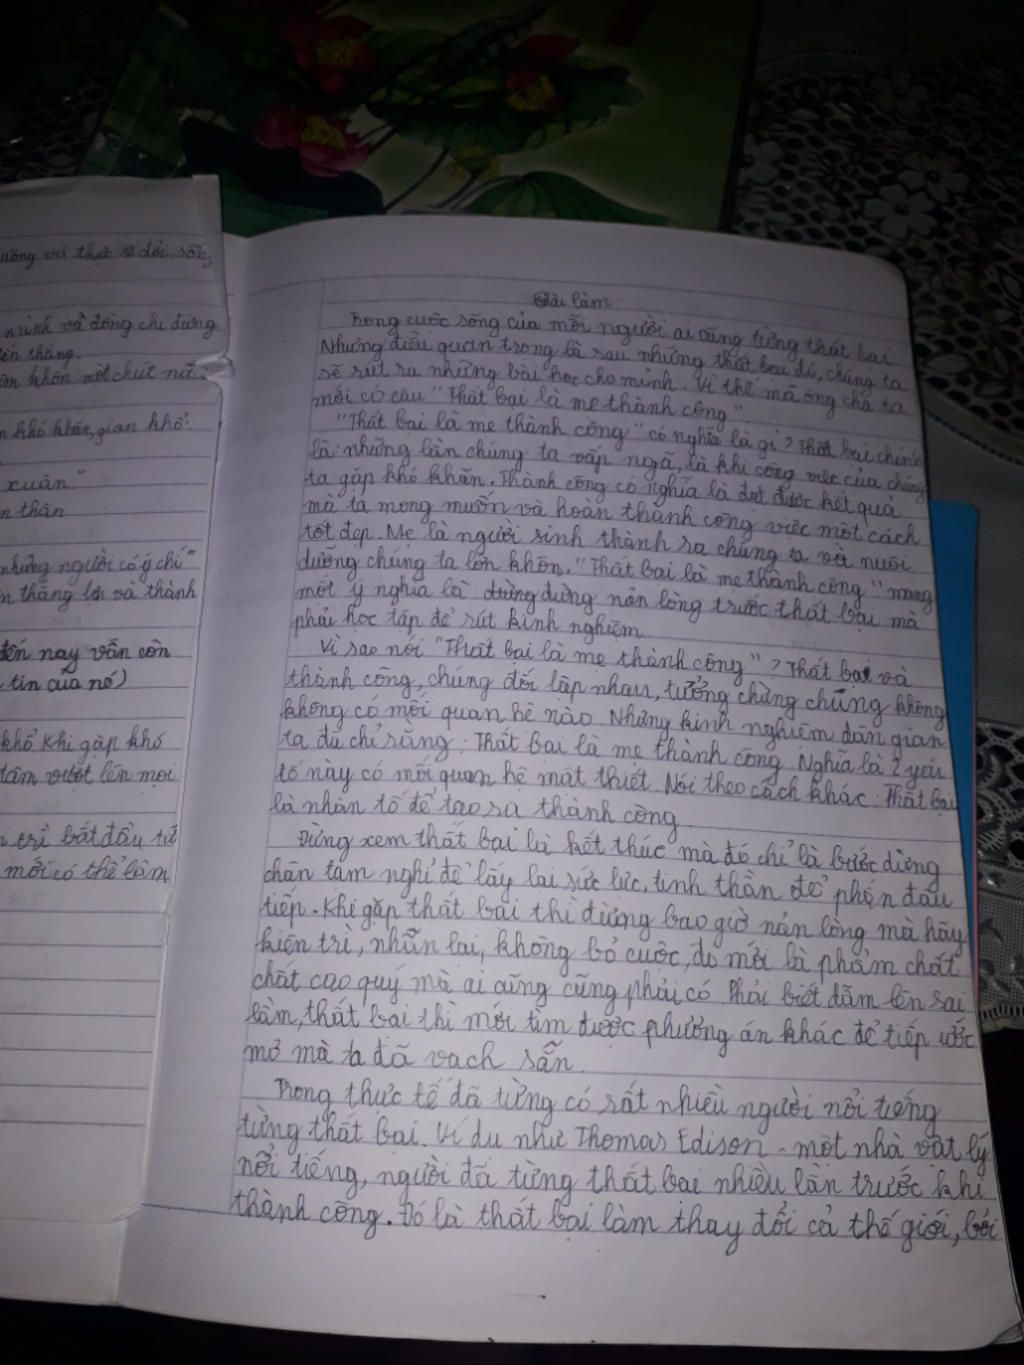 ưởng và thực tế đời sống
mình và đồng chí đứng
lên thắng.
khôn một chút nữa.
khó khăn, gian khổ:
xuân."
n thân
những người có ý chí"
n thắng lợi và thành
đến nay vẫn còn
tin của nó)
khổ khi gặp khó
tâm vượt lên mọi
trì bắt đầu từ
mới có thể làm
Bài làm
Trong cuộc sống của mỗi người ai cũng từng thất bại
Nhưng điều quan trọng là sau những thất bại đó, chúng ta
sẽ rút ra những bài học cho mình. Vì thế mà ông cha ta
mới có câu "Thất bại là mẹ thành công"
"Thất bại là mẹ thành công" có nghĩa là gì? Thất bại chính
là những lần chúng ta vấp ngã, là khi công việc của chúng
ta gặp khó khăn. Thành công có nghĩa là đạt được kết quả
mà ta mong muốn và hoàn thành công việc một cách
tốt đẹp. Mẹ là người sinh thành ra chúng ta và nuôi
dưỡng chúng ta lớn khôn. "Thất bại là mẹ thành công" mang
một ý nghĩa là: đừng đừng nản lòng trước thất bại mà
phải học tập để rút kinh nghiệm.
Vì sao nói "Thất bại là mẹ thành công"? Thất bại và
thành công, chúng đối lập nhau, tưởng chừng chúng không
không có mối quan hệ nào. Những kinh nghiệm dân gian
ta đã chỉ rằng: Thất bại là mẹ thành công. Nghĩa là 2 yếu
tố này có mối quan hệ mật thiết. Nói theo cách khác: Thất bại
là nhân tố để tạo ra thành công.
Đừng xem thất bại là kết thúc mà đó chỉ là bước dừng
chân tạm nghỉ để lấy lại sức lực, tinh thần để phấn đấu
tiếp. Khi gặp thất bại thì đừng bao giờ nản lòng mà hãy
kiên trì, nhẫn lại, không bỏ cuộc, đó mới là phẩm chất
chất cao quý mà ai cũng cũng phải có. Phải biết dẫm lên sai
lầm, thất bại thì mới tìm được phương án khác để tiếp ước
mơ mà ta đã vạch sẵn.
Trong thực tế đã từng có rất nhiều người nổi tiếng
từng thất bại. Ví dụ như Thomas Edison - một nhà vật lý
nổi tiếng, người đã từng thất bại nhiều lần trước khi
thành công. Đó là thất bại làm thay đổi cả thế giới, bởi